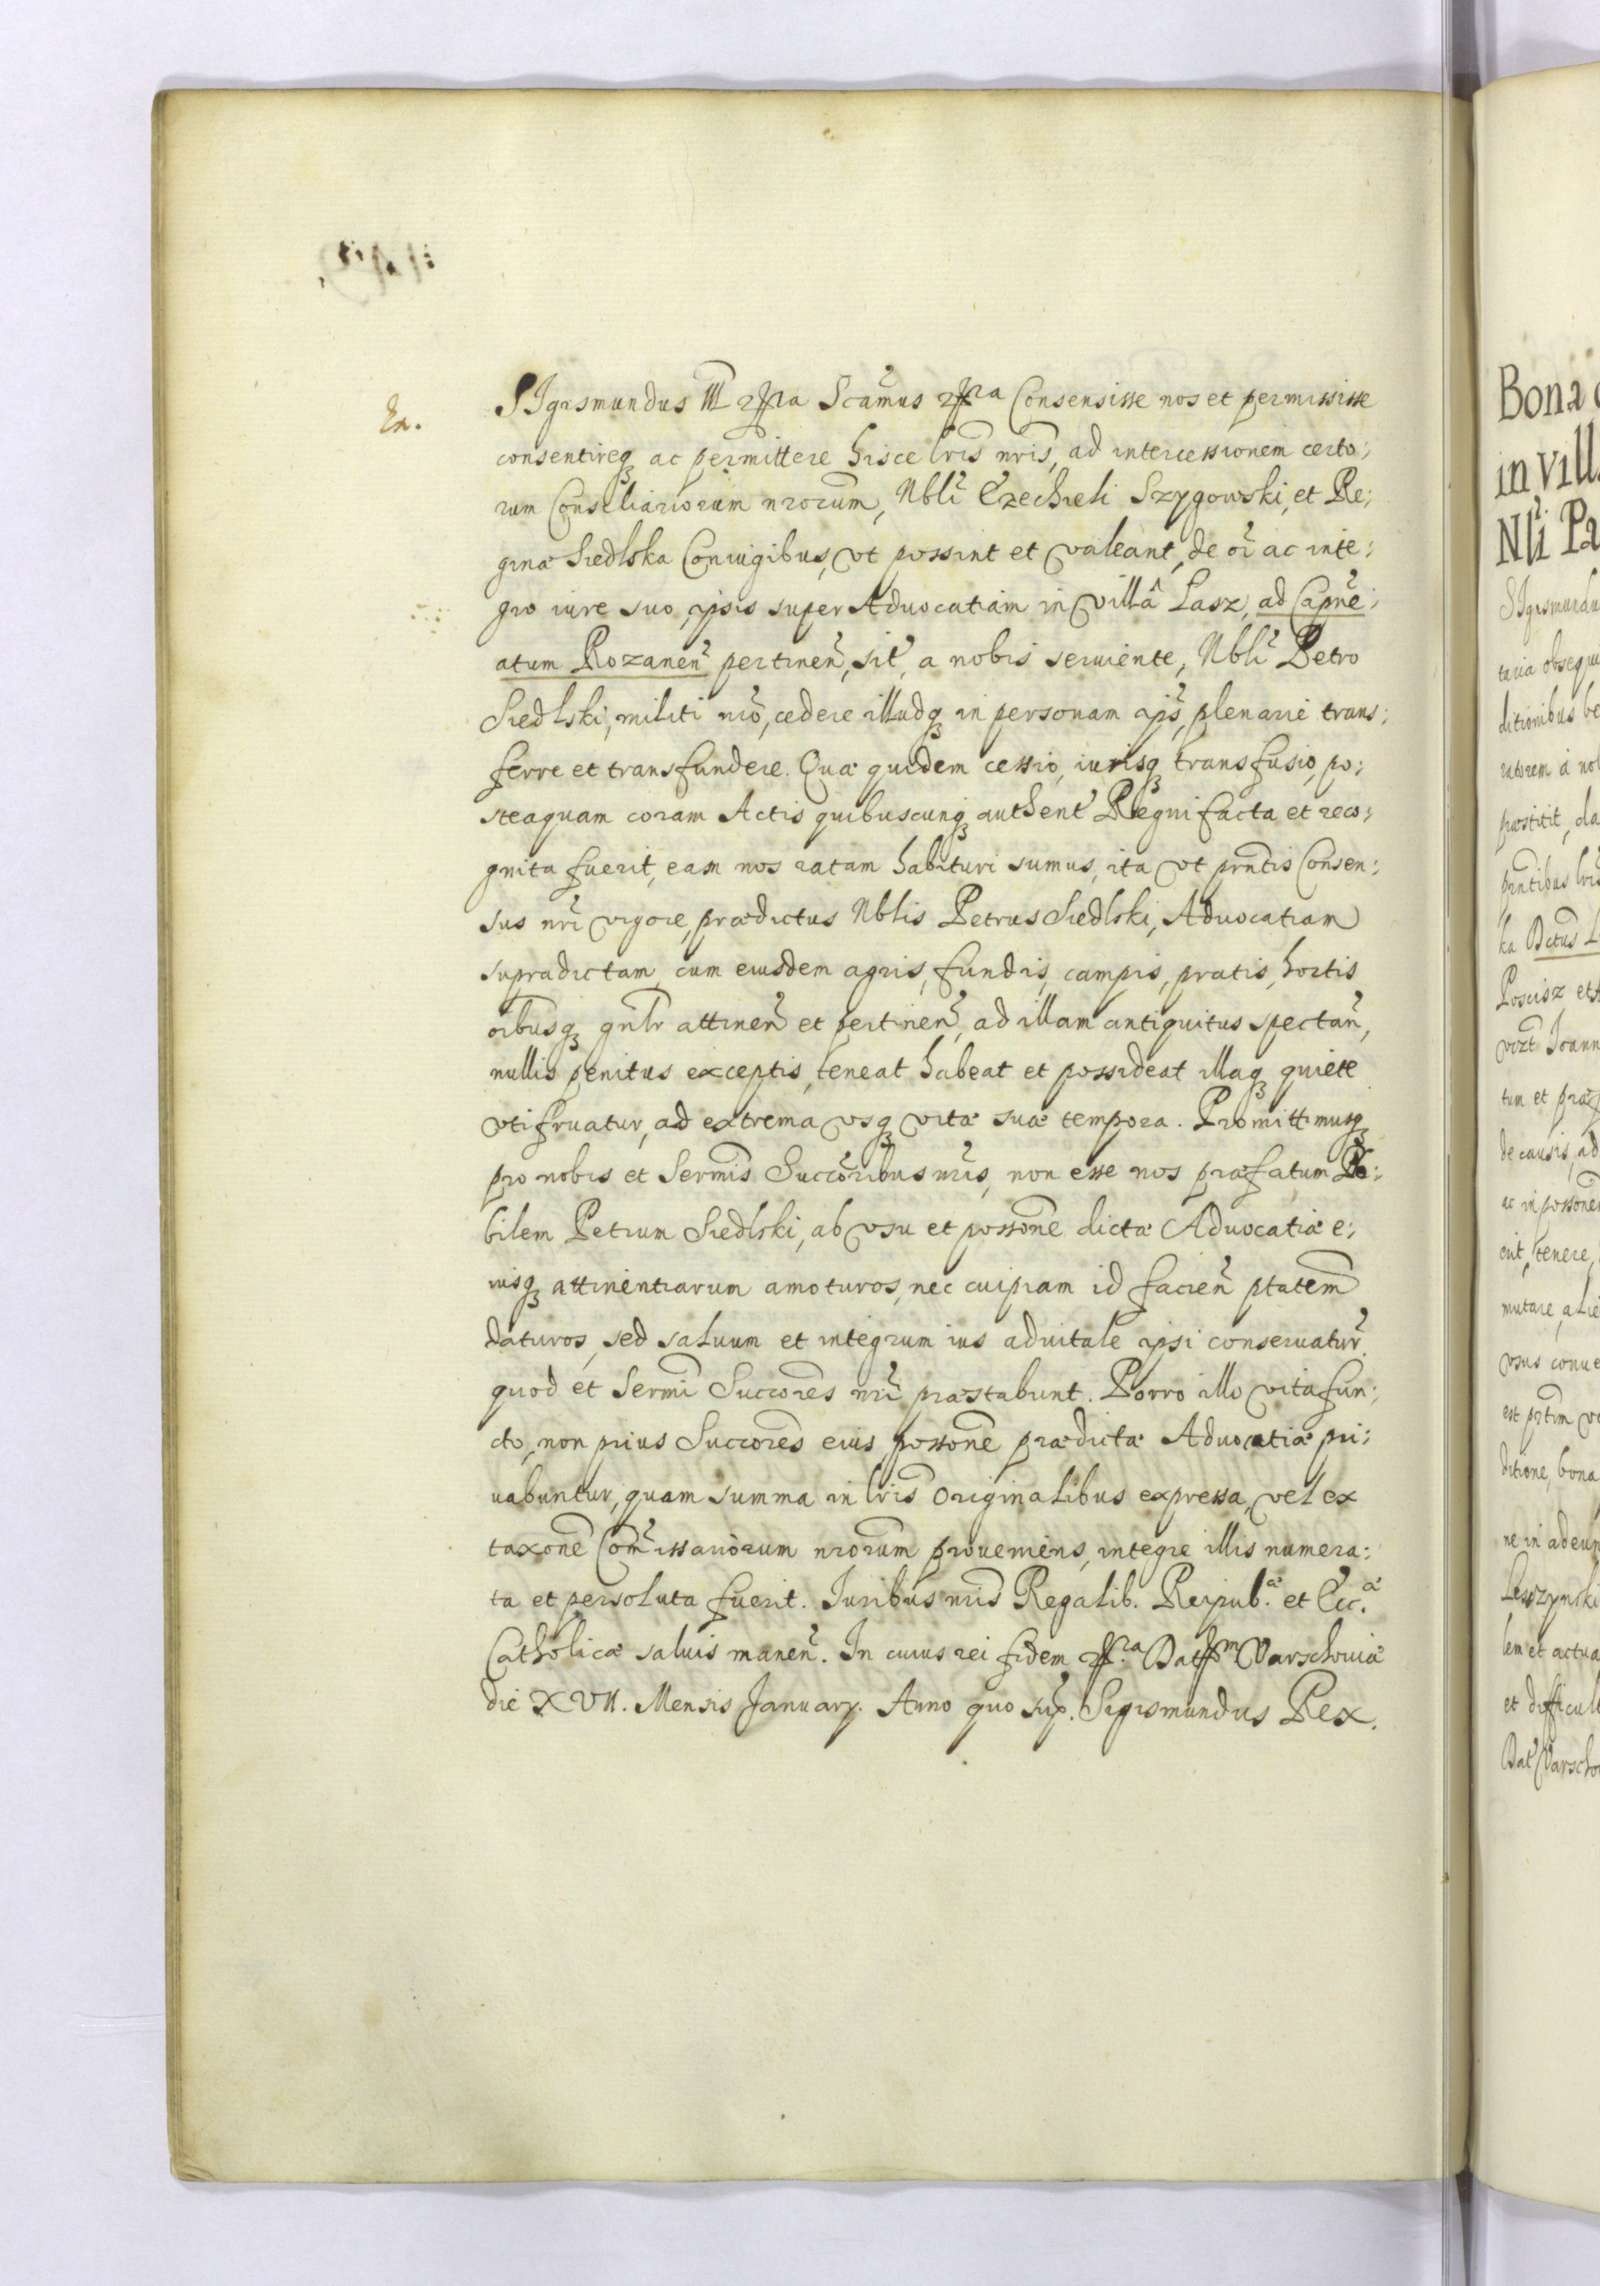 En.
SIgismundus III etc̃ra Scãmus etc̃ra Consensisse nos et permississe
consentireq ac permittere hisce lris nris, ad intercessionem certo:
rum Consiliariorum nrorum, Nbli Ezechieli Szygowski, et Re:
ginæ Siedlska Coniugibus, vt possint et valeant, de oi ac inte:
gro iure suo, ipsis super Aduocatiam in villâ Lasz, ad Capne:
atum Rozanen pertinen, sit, a nobis seruiente, Nbli Petro
Siedlski, militi nro, cedere illudq in personam ipis, plenarie trans:
ferre et transfundere. Quæ quidem cessio, iurisq transfusio, po:
steaquam coram Actis quibuscunq authent Regni facta et reco:
gnita fuerit, eam nos ratam habituri sumus, ita vt prntis Consen:
sus nri vigore, prædictus Nblis Petrus Siedlski, Aduocatiam
supradictam, cum eiusdem agris, fundis, campis, pratis, hortis
oibusq gnlr attinen et pertinen, ad illam antiquitus spectan,
nullis penitus exceptis, teneat habeat et possideat illaq quiete
vti fruatur, ad extrema vsq vitæ suæ tempora. Promittimusq
pro nobis et Sermis Succoribus nris, non esse nos præfatum No:
bilem Petrum Siedlski, ab vsu et possone dictæ Aduocatiæ e:
iusq attinentiarum amoturos, nec cuipiam id facien ptatem
daturos, sed saluum et integrum ius aduitale ipsi conseruatur.
quod et Sermi Succores nri præstabunt. Porro illo vita fun:
cto, non prius Succores eius possone prædictæ Aduocatiæ pri:
uabuntur, quam summa in lris Originalibus expressa, vel ex
taxone Comissariorum nrorum proueniens, integre illis numera:
ta et persoluta fuerit. Iuribus nris Regalib. Reipub.æ et Ecc.æ
Catholicæ saluis manen. In cuius rei fidem etc̃.ra Datum Varschouiæ
die XVII. Mensis January. Anno quo sup. Sigismundus Rex.
Bona
in vill
Nli Pa
SIgismundu
taria obsequi
ditionibus be
ratorem a nob
præstitit, da
prntibus lris
ka Dctus L
Poscisz et
vizt Joann
tum et præ
de causis, ad
ac in possonem
erit, tenere,
mutare, alie
vsus conue
est prtim ve
ditione, bona
ne in adeun
Leszzynski
lem et actua
et difficult
Dat Varscho